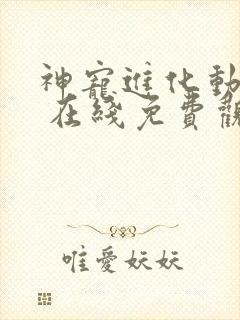 神寵進化動
在綫免費觀
唯愛妖妖